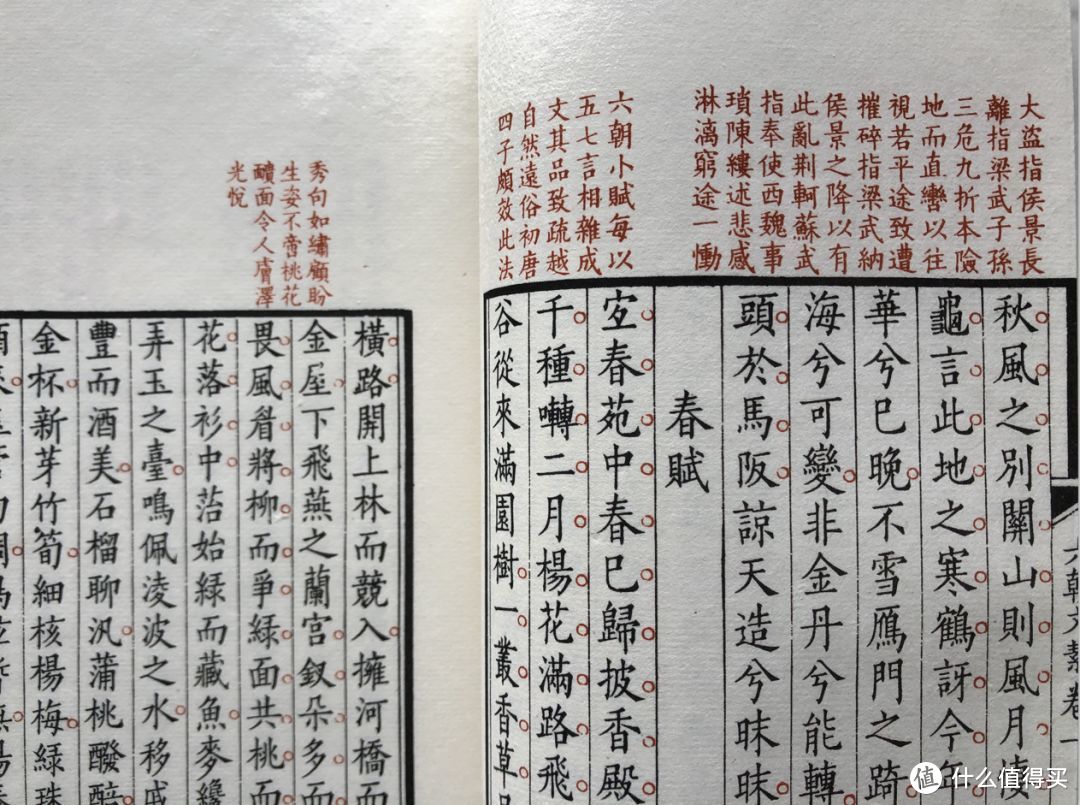 大盜指侯景長
離指梁武子孫
三危九折本險
地而直轡以往
視若平途致遭
摧碎指梁武納
侯景之降以有
此亂荆軻蘇武
指奉使西魏事
瑣陳縷述悲感
淋漓窮途一慟
六朝小賦每以
五七言相雜成
文其品致疏越
自然遠俗初唐
四子頗效此法
六朝文絜卷一
秋風之別關山則風月悽
龜言此地之寒鶴訝今年
華兮已晚不雪鴈門之踦
海兮可變非金丹兮能轉
頭於馬阪諒天造兮昧昧
春賦
宐春苑中春已歸披香殿
千種囀二月楊花滿路飛
谷從來滿園樹一叢香草
秀句如繡顧盼
生姿不啻桃花
靧面令人膚澤
光悅
橫路開上林而競入擁河橋而
金屋下飛燕之蘭宮釵朶多而
畏風眉將柳而爭綠面共桃而
花落衫中苔始綠而藏魚麥纔
弄玉之臺鳴佩淩波之水移戚
豐而酒美石榴聊汎蒲桃醱醅
金杯新芽竹筍細核楊梅綠珠
值 什么值得买